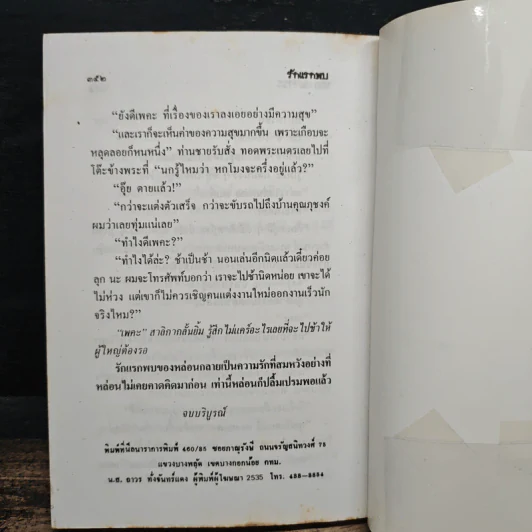 ๓๕๒
รักแรกพบ
“ยังดีเพคะ ที่เรื่องของเราลงเอยอย่างมีความสุข”
“และเราก็จะเห็นค่าของความสุขมากขึ้น เพราะเกือบจะ
หลุดลอยก็หนหนึ่ง” ท่านชายรับสั่ง ทอดพระเนตรเลยไปที่
โต๊ะข้างพระที่ “นกรู้ไหมว่า หกโมงจะครึ่งอยู่แล้ว?”
“อุ๊ย ตายแล้ว!”
“กว่าจะแต่งตัวเสร็จ กว่าจะขับรถไปถึงบ้านคุณภุชงค์
ผมว่าเลยทุ่มแน่เลย”
“ทำไงดีเพคะ?”
“ทำไงได้ล่ะ? ช้าเป็นช้า นอนเล่นอีกนิดแล้วเดี๋ยวค่อย
ลุก นะ ผมจะโทรศัพท์บอกว่า เราจะไปช้านิดหน่อย เขาจะได้
ไม่ห่วง แต่เขาก็ไม่ควรเชิญคนแต่งงานใหม่ออกงานเร็วนัก
จริงไหม?”
“เพคะ” สาลิกากลั้นยิ้ม รู้สึกไม่แคร์อะไรเลยที่จะไปช้าให้
ผู้ใหญ่ต้องรอ
รักแรกพบของหล่อนกลายเป็นความรักที่สมหวังอย่างที่
หล่อนไม่เคยคาดคิดมาก่อน เท่านี้หล่อนก็ปลื้มเปรมพอแล้ว
จบบริบูรณ์
พิมพ์ที่นีลนาราการพิมพ์ 460/85 ซอยภาณุรังษี ถนนจรัญสนิทวงศ์ 75
แขวงบางพลัด เขตบางกอกน้อย กทม.
น.ส. ถาวร ทั่งจันทร์แดง ผู้พิมพ์ผู้โฆษณา 2535 โทร.